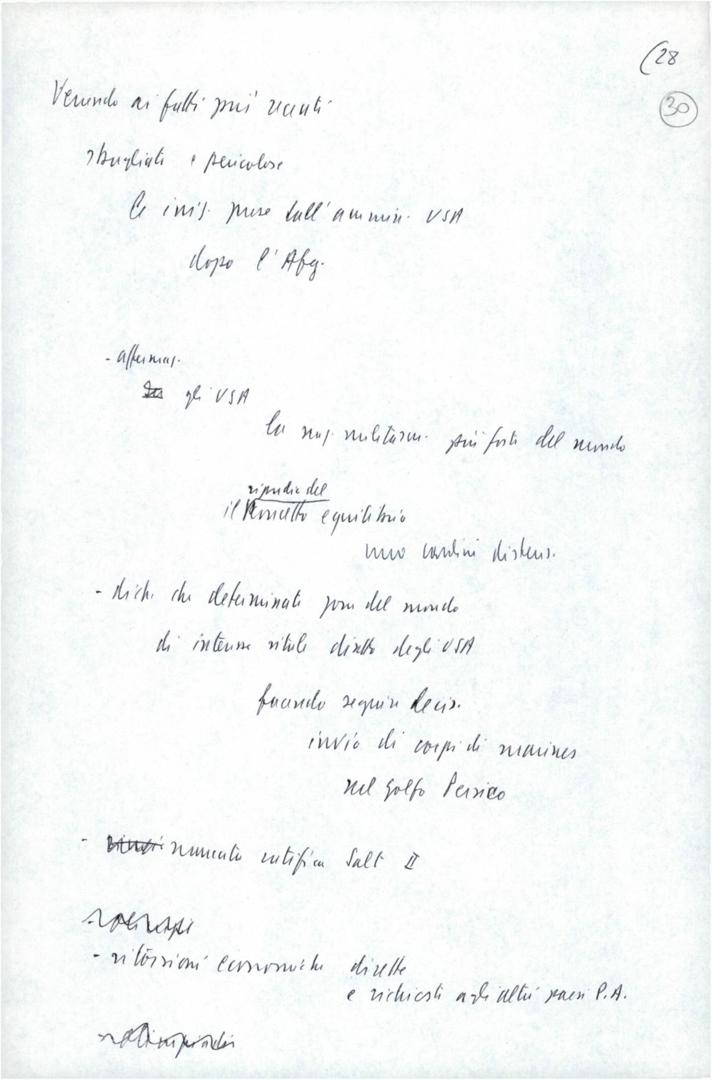 (28
30
Venendo ai fatti più recenti
sbagliate e pericolose
le iniz. prese dall'ammin. USA
dopo l'Afg.
- affermaz.
gli USA
la naz. militarm. più forte del mondo
ripudio del
il concetto equilibrio
uno cardini distens.
- dich. che determinate zone del mondo
di interesse vitale diretto degli USA
facendo seguire decis.
invio di corpi di marines
nel Golfo Persico
- mancata ratifica Salt II
- ritorsioni economiche dirette
e richieste agli altri paesi P.A.